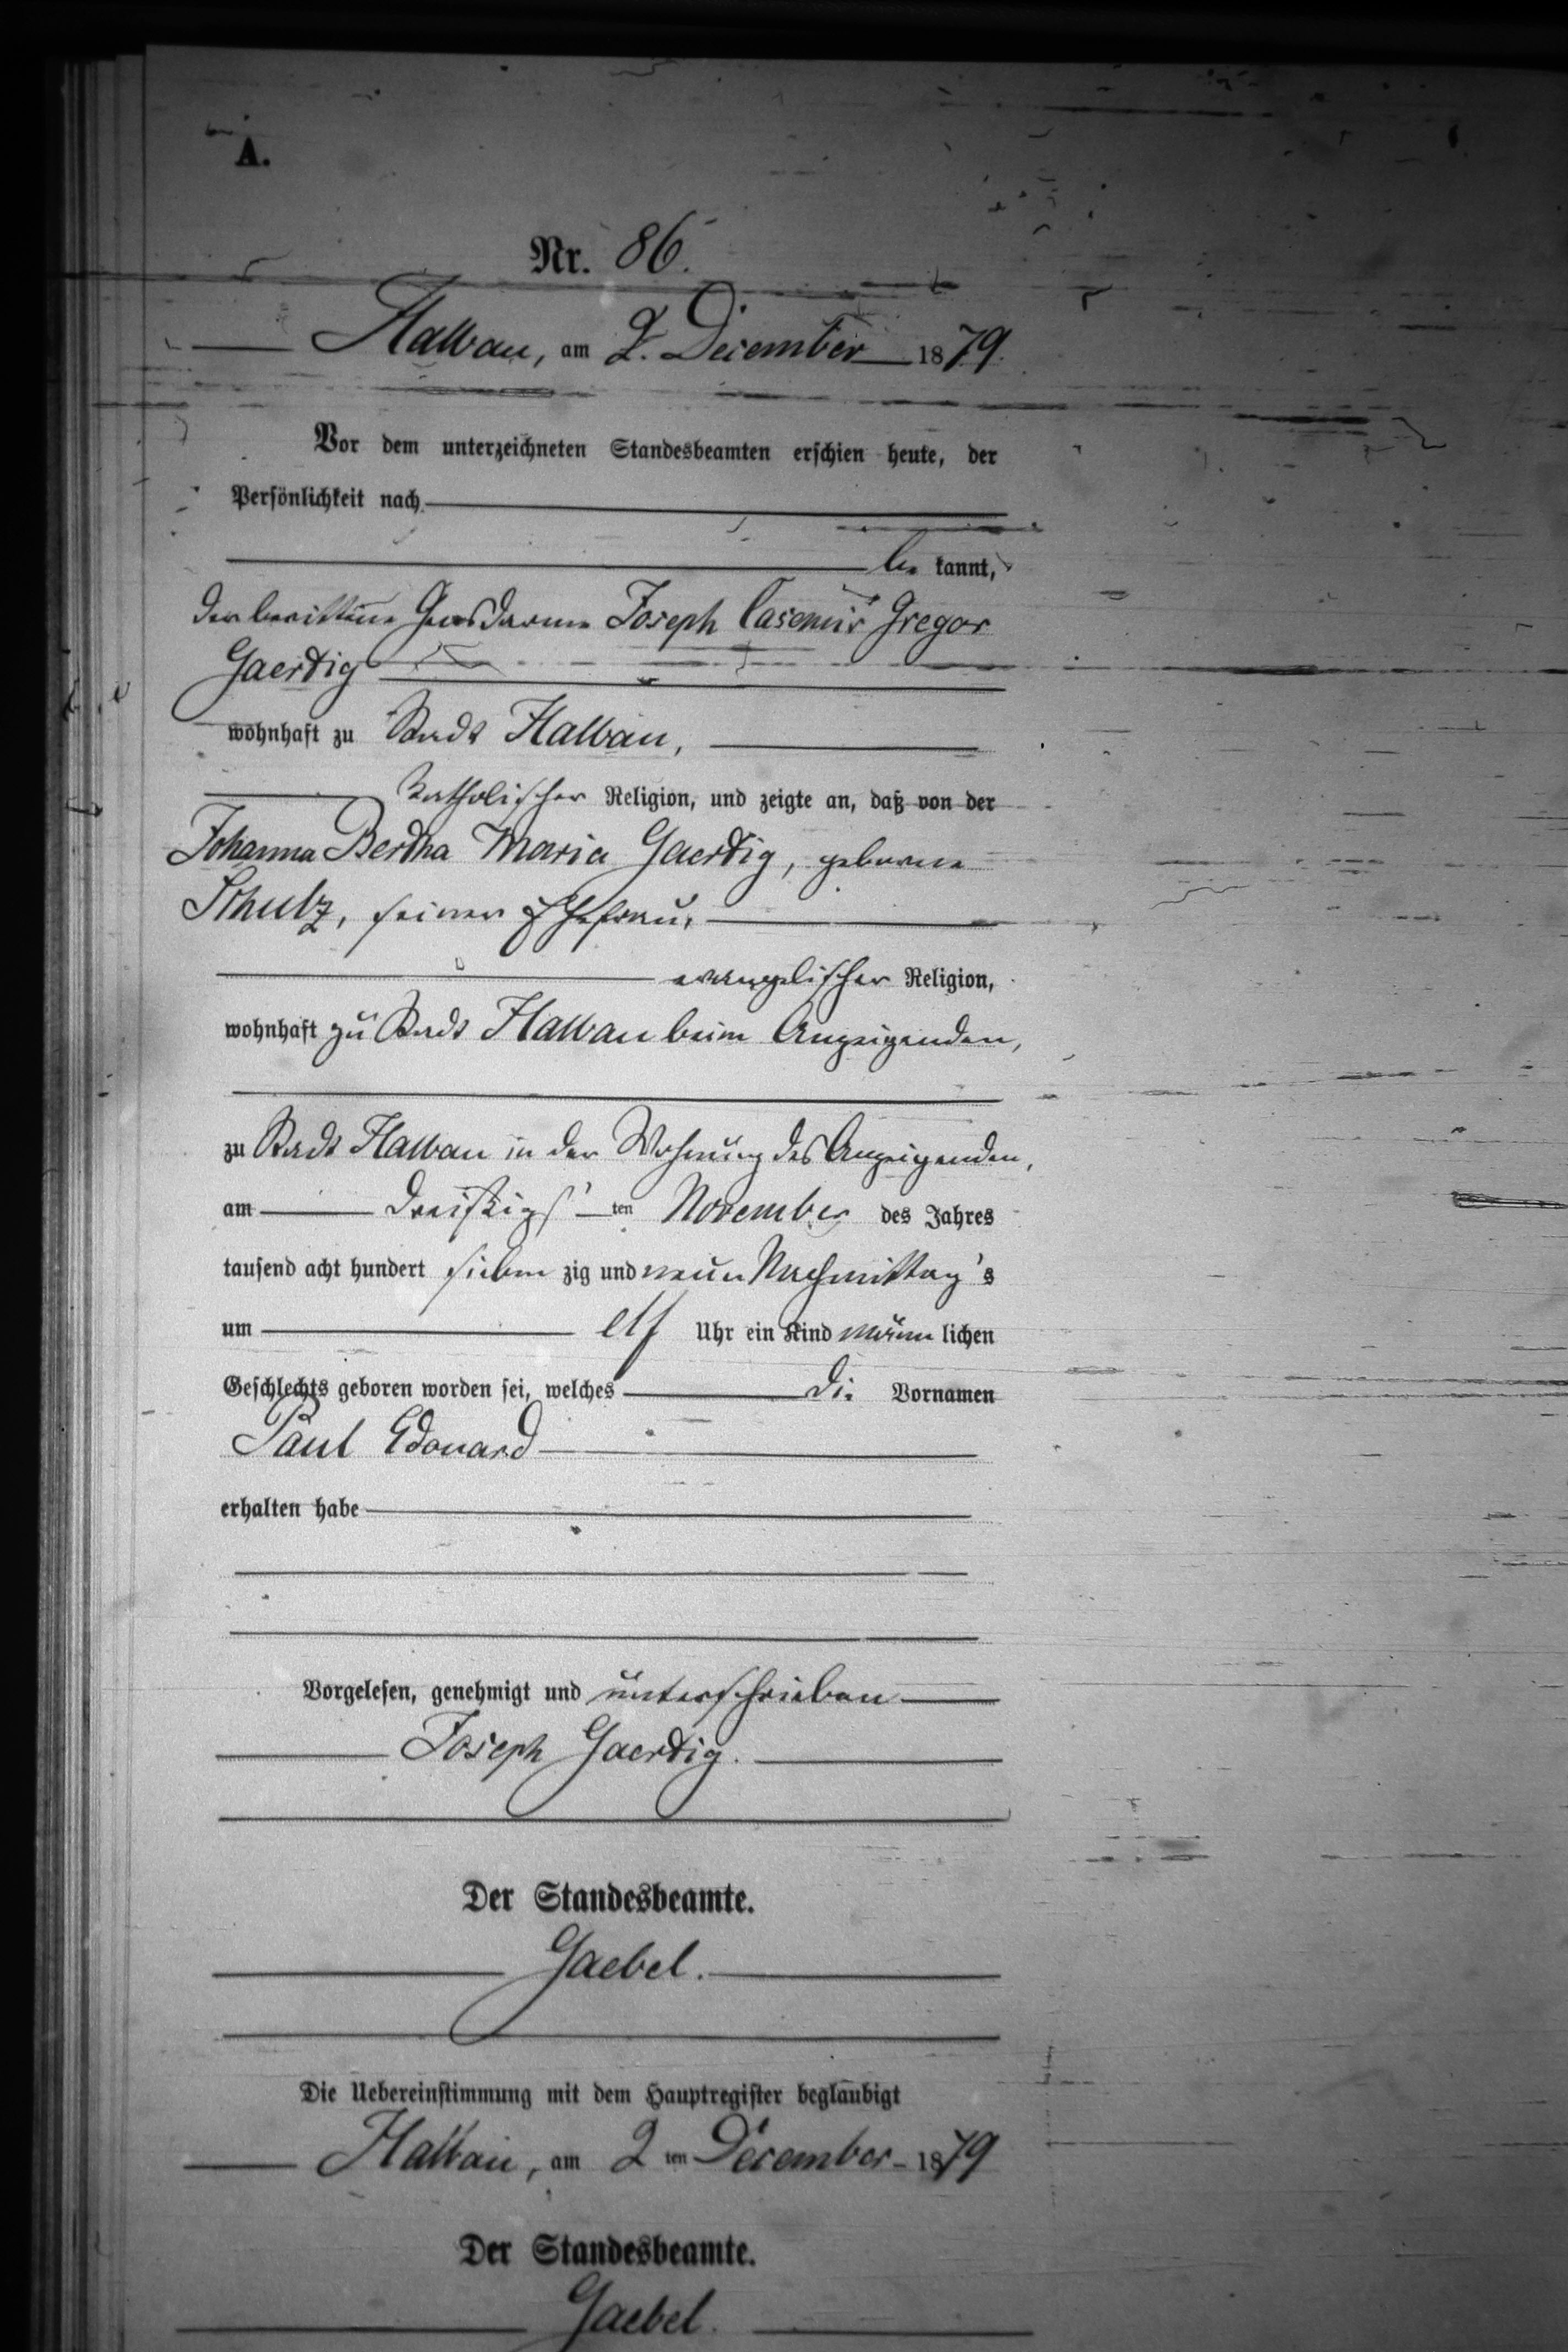 A.
Nr. 86.
Halbau, am 2. December 1879.
Vor dem unterzeichneten Standesbeamten erschien heute, der
Persönlichkeit nach
be kannt,
der berittene Gensdarme Joseph Casemir Gregor
Gaertig
wohnhaft zu Stadt Halbau,
katholischer Religion, und zeigte an, daß von der
Johanna Bertha Maria Gaertig, geborne
Schulz, seiner Ehefrau,
evangelischer Religion,
wohnhaft zu Stadt Halbau beim Anzeigenden,
zu Stadt Halbau in der Wohnung des Anzeigenden,
am dreißigs ten November des Jahres
tausend acht hundert sieben zig und neun Nachmittag's
um elf Uhr ein Kind männ lichen
Geschlechts geboren worden sei, welches die Vornamen
Paul Edouard
erhalten habe
Vorgelesen, genehmigt und unterschrieben
Joseph Gaertig.
Der Standesbeamte.
Gaebel.
Die Uebereinstimmung mit dem Hauptregister beglaubigt
Halbau, am 2 ten December 1879
Der Standesbeamte.
Gaebel.